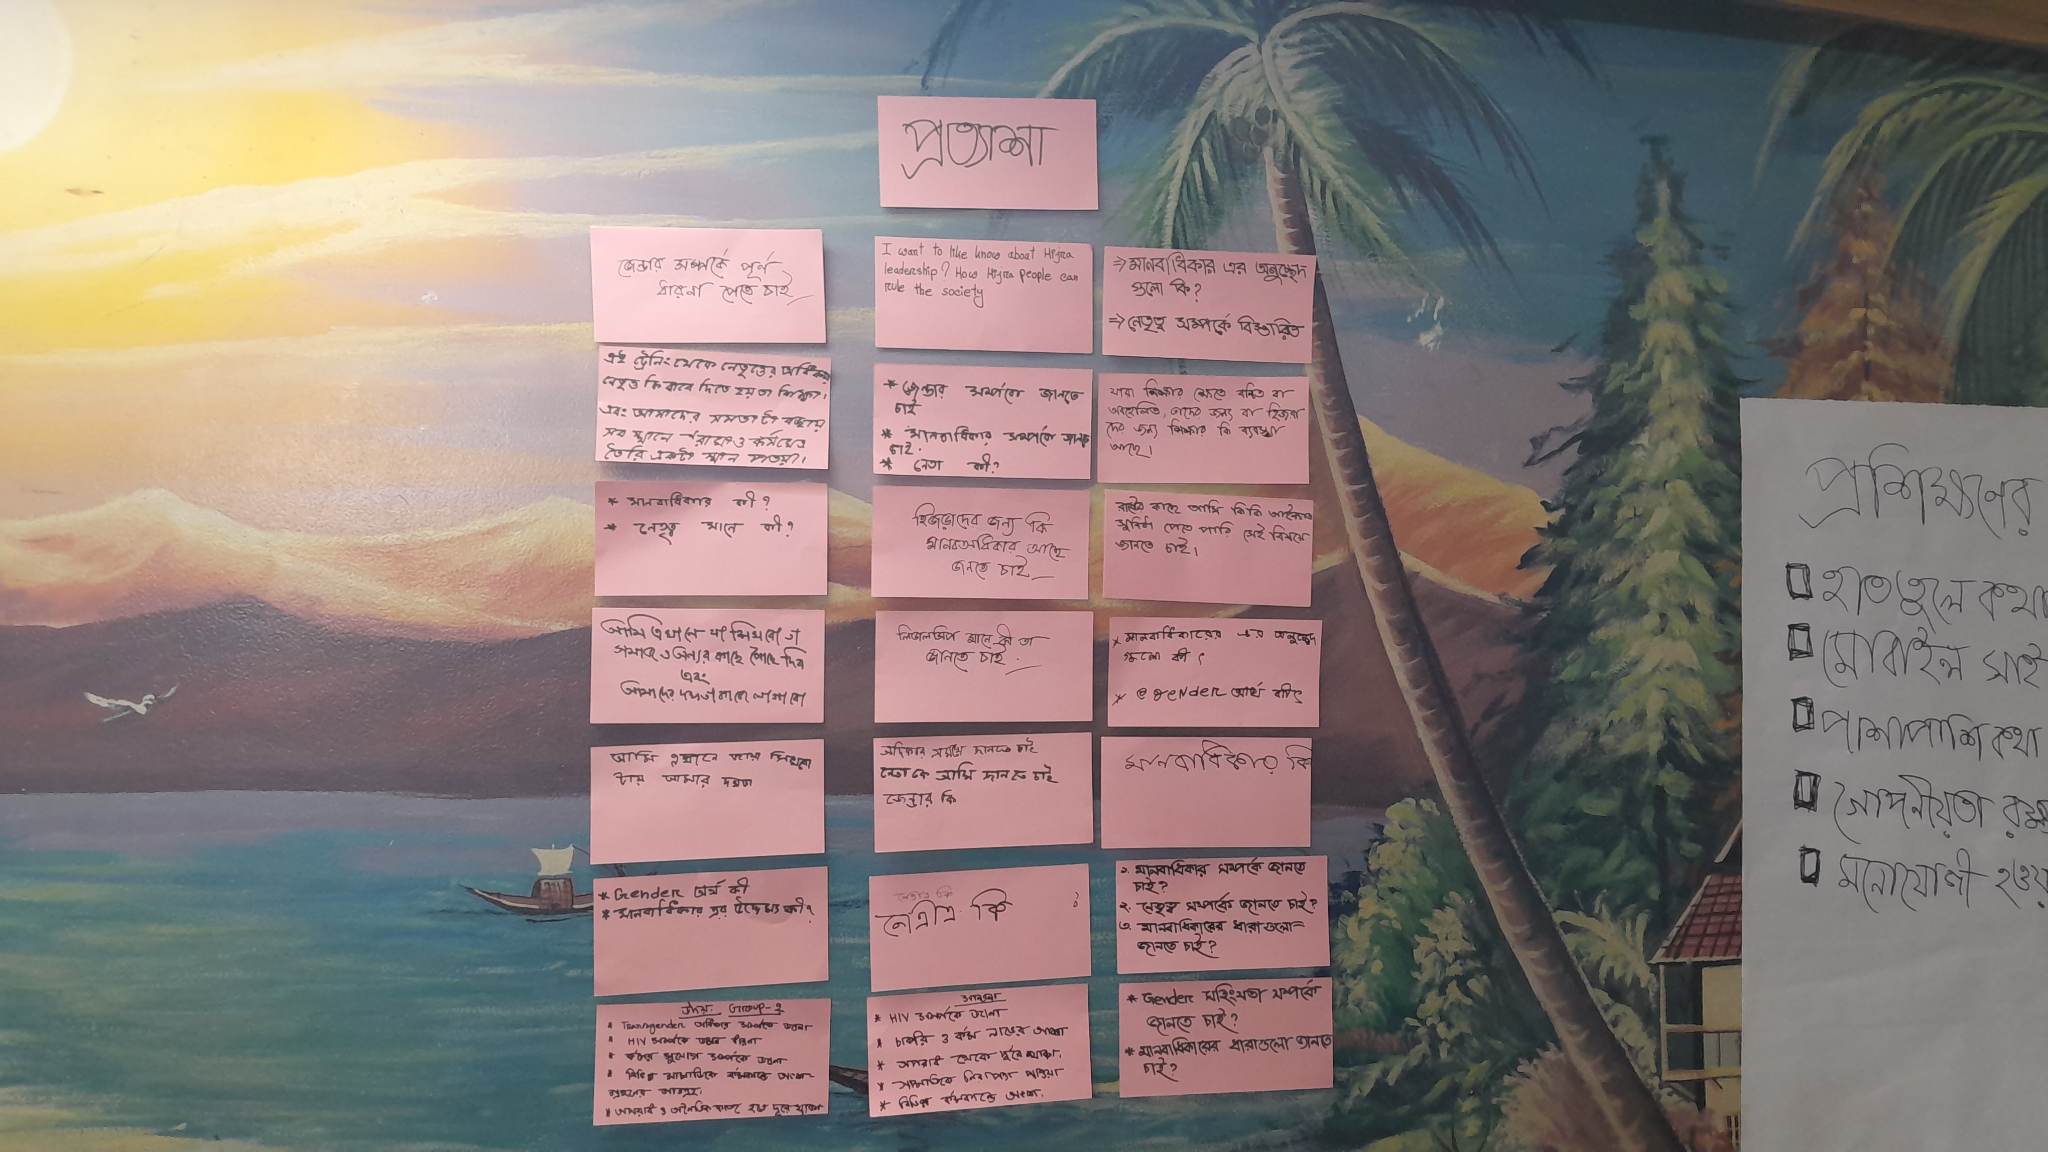 প্রত্যাশা
জেন্ডার সম্পর্কে পূর্ন
ধারনা পেতে চাই
এই ট্রেনিং থেকে নেতৃত্বের অধিকার
নেতৃত্ব কিভাবে দিতে হয় তা শিখবো।
এবং আমাদের
সব স্থানে
তৈরি একটা স্থান
* মানবাধিকার কী?
* নেতৃত্ব মানে কী?
আমি এখানে যা শিখবো তা
সমাজে ও অন্যর কাছে পৌছে দিব
এবং
আমাদের দক্ষতা কাজে লাগাবো
আমি এখানে শিখবো
টায় আমার দক্ষতা
* Gender অর্থ কী
* মানবাধিকার এর উদ্দেশ্য কী?
Group-2
* Transgender অধিকার সম্পর্কে জানা
* HIV সম্পর্কে ধারনা
* সুযোগ সম্পর্কে জানা
* বিভিন্ন সামাজিক কর্মকান্ডে অংশ-
গ্রহনের
* অপরাধ ও অনৈতিক কাজ হতে দূরে থাকা
I want to like know about Hijra
leadership? How Hijra people can
rule the society
* জেন্ডার সম্পর্কে জানতে
চাই
* মানবাধিকার সম্পর্কে জানতে
চাই.
* নেতা কী?
হিজড়াদের জন্য কি
মানবঅধিকার আছে
জানতে চাই
লিডারশিপ মানে কী তা
জানতে চাই.
অধিকার জানতে চাই
আমি জানতে চাই
জেন্ডার কি
কি ?
* HIV সম্পর্কে জানা
* চাকরি ও কর্ম
* অপরাধ থেকে দূরে থাকা.
* সামাজিক নিরাপত্তা পাওয়া
* বিভিন্ন কর্মকান্ডে অংশ.
⇒ মানবাধিকার এর অনুচ্ছেদ
গুলো কি?
⇒ নেতৃত্ব সম্পর্কে বিস্তারিত
যারা শিক্ষার ক্ষেত্রে বঞ্চিত বা
অবহেলিত, তাদের জন্য বা হিজরা
দের জন্য শিক্ষার কি ব্যবস্থা
আছে।
রাষ্ট্রের কাছে আমি কি কি
সুবিধা পেতে পারি সেই বিষয়ে
জানতে চাই।
* মানবাধিকারের এর অনুচ্ছেদ
গুলো কী?
* @ gender অর্থ কী?
মানবাধিকার কি
১. মানবাধিকার সম্পর্কে জানতে
চাই?
২. নেতৃত্ব সম্পর্কে জানতে চাই?
৩. মানবাধিকারের ধারাগুলো
জানতে চাই?
* Gender সহিংসতা সম্পর্কে
জানতে চাই?
* মানবাধিকারের ধারাগুলো জানতে
চাই?
প্রশিক্ষনের
হাত তুলে কথা
মোবাইল সাই
পাশাপাশি কথা
গোপনীয়তা রক্ষা
মনোযোগী হওয়া